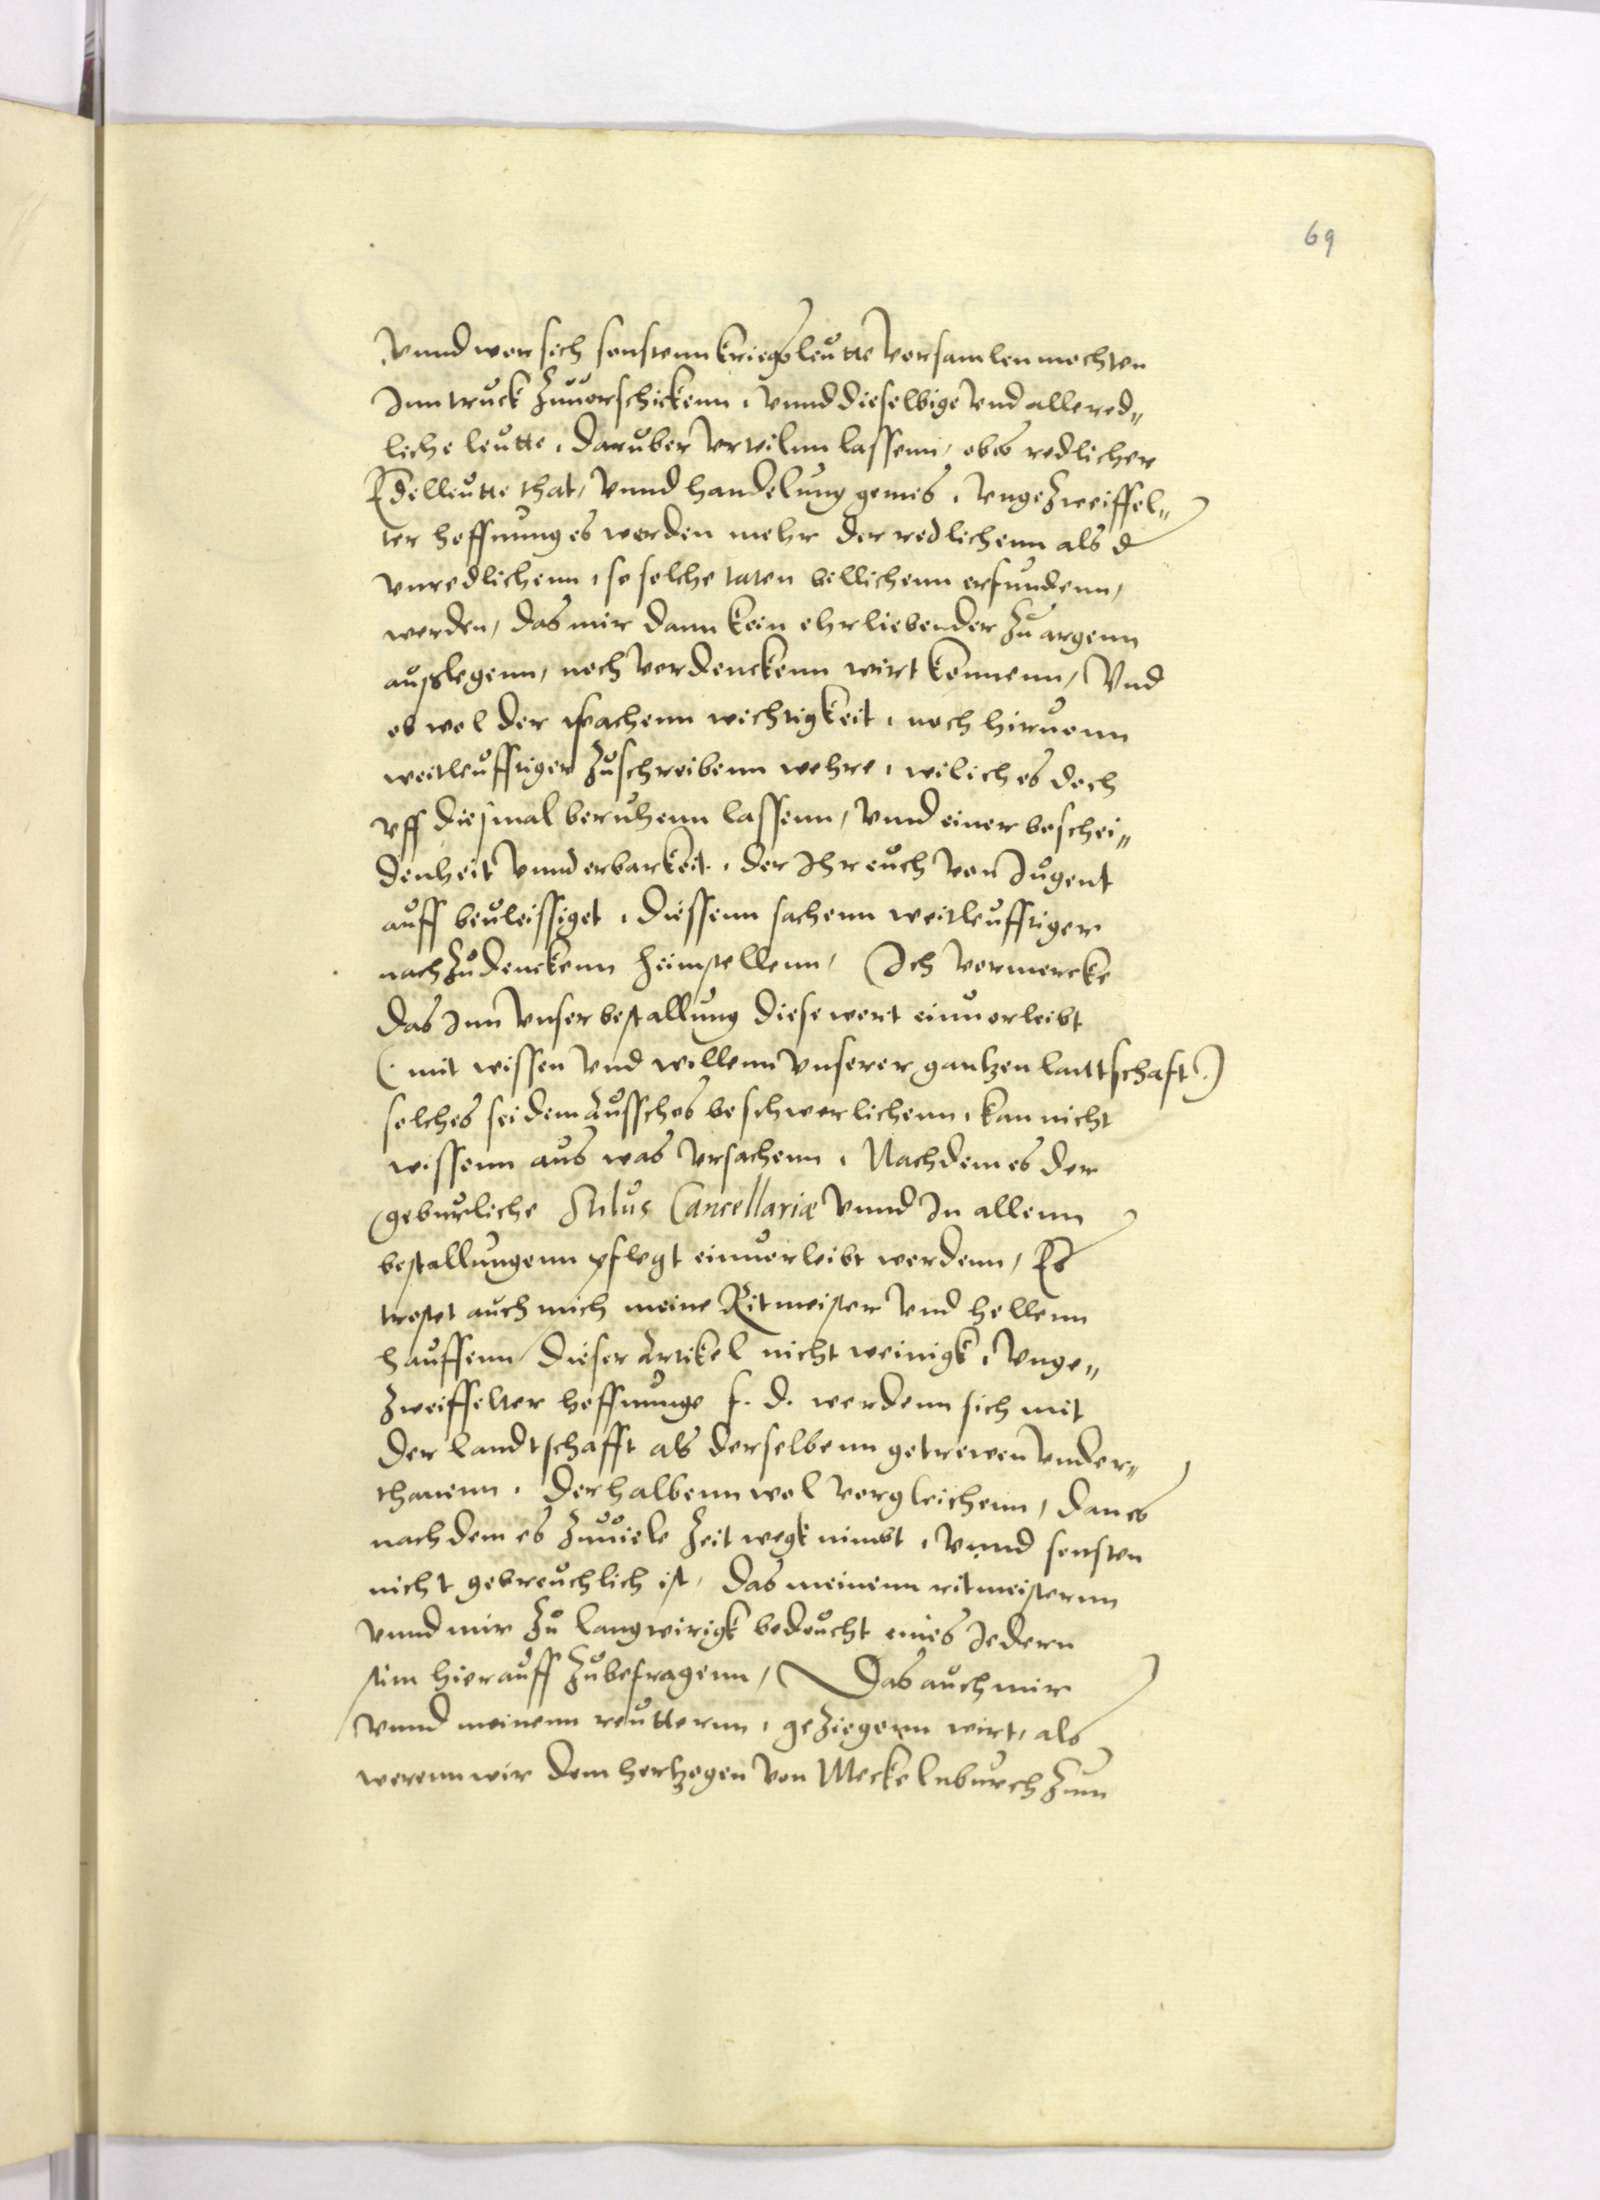 69
Vnnd wor sich sonstenn kriegsleutte Versamlen mochten
Inn truck zuuorschickenn, Vnnd dieselbige Vnd alle red„
liche leutte, daruber Vrteiln lassenn, obes redlicher
Edelleutte that, Vnnd handelung gemes, Vngezweiffel„
ter hoffnung es werden mehr der redlichenn als d
vnredlichenn, so solche taten billichenn erfundenn,
werden, das mir dann kein ehrliebender zu argenn
auslegenn, noch Vordenckenn wirt konnenn, Vnd
ob wol der sachenn wichtigkeit, noch hiruonn
weitleufftiger zuschreibenn wehre, wil ich es doch
Vff diesmal beruhenn lassenn, Vnnd einer beschei„
denheit Vnnd erbarkeit, der Ihr euch Von Jugent
auff beuleissiget, diessenn sachenn weitleufftiger
nachzudenckenn heimstellenn, Ich Vormercke
das Inn Vnser bestallung diese wort einuorleibt
(mit wissen Vnd willenn Vnserer gantzen lanttschaft)
solches sei dem ausschos beschwerlichenn, kan nicht
wissenn aus was Vrsachenn, Nachdem es der
geburliche Stilus Cancellariæ Vnnd In allenn
bestallungenn pflegt einuorleibt werdenn, Es
trostet auch mich meine Ritmeister Vnd hellenn
hauffenn dieser Artikel nicht weinigk, Vnge„
zweiffelter hoffnunge f. d. werdenn sich mit
der landtschafft als derselbenn getrewen Vnder„
thanenn, derhalbenn wol Vorgleichenn, dan es
nach dem es zuuiele zeit wegk nimbt, Vnnd sonsten
nicht gebreuchlich ist, das meinenn ritmeisternn
Vnnd mir zu langwirigk bedeucht eines Jedern
stim hierauff zubefragenn, Das auch mir
Vnnd meinenn reutternn, geziegenn wirt, als
werenn wir dem hertzogen von Meckelnburch zum